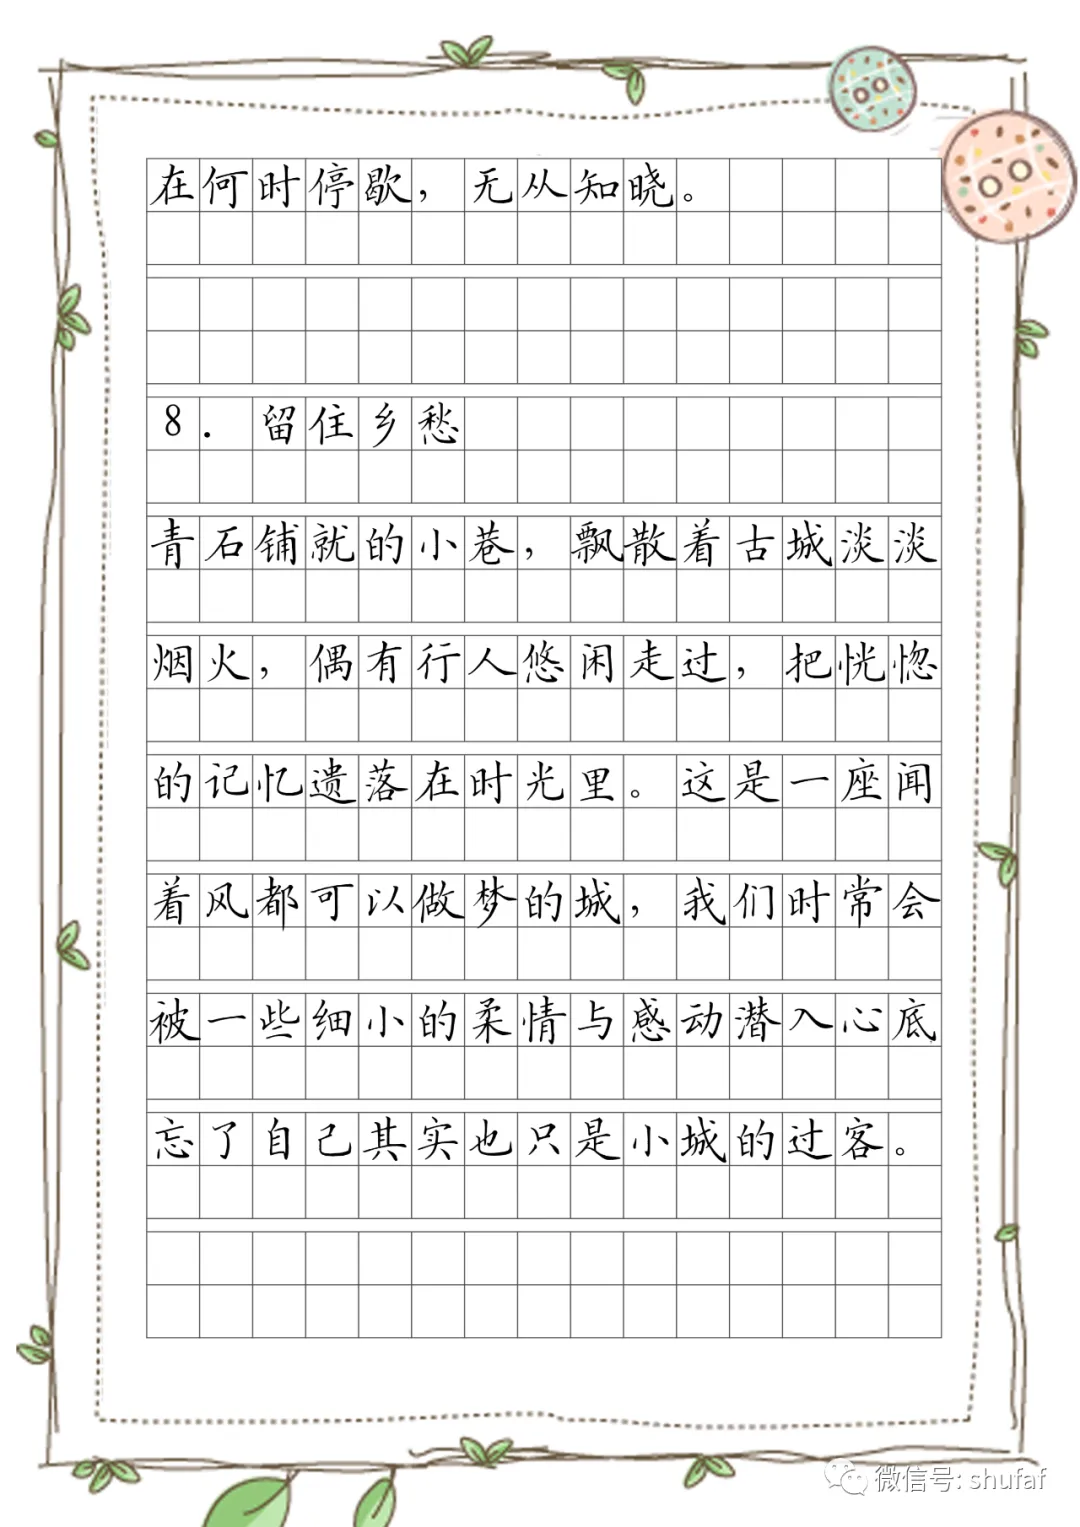 在何时停歇，无从知晓。
8．留住乡愁
青石铺就的小巷，飘散着古城淡淡
烟火，偶有行人悠闲走过，把恍惚
的记忆遗落在时光里。这是一座闻
着风都可以做梦的城，我们时常会
被一些细小的柔情与感动潜入心底
忘了自己其实也只是小城的过客。
微信号: shufaf